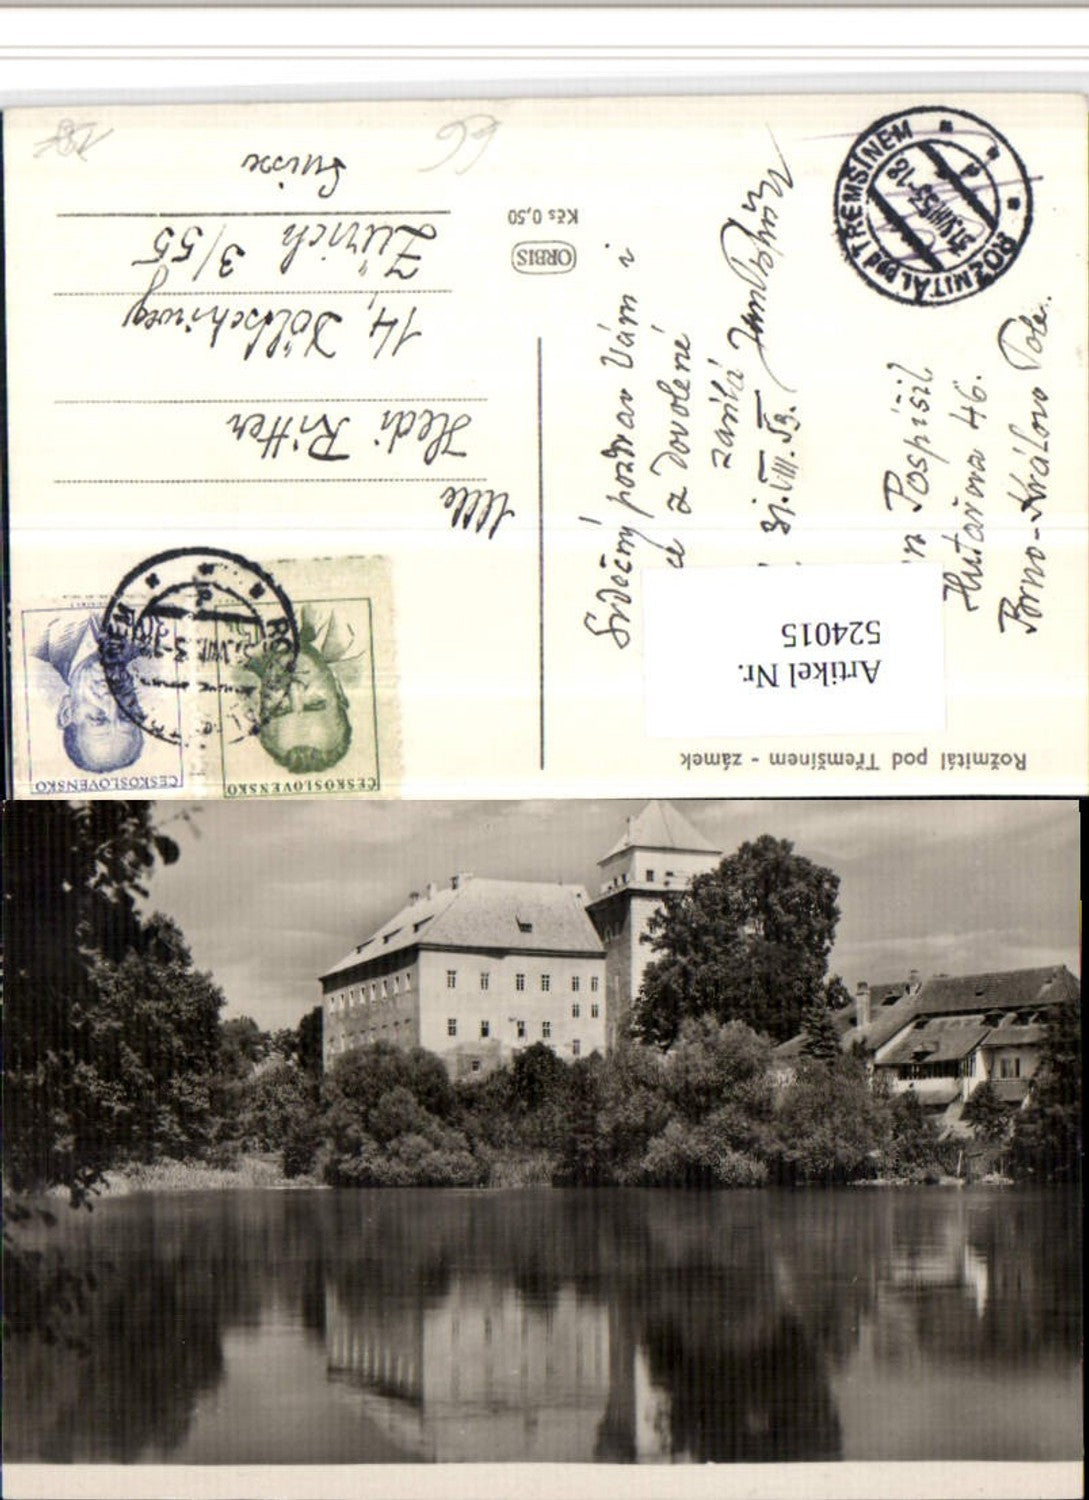 Rožmitál pod Třemšínem - zámek
Artikel Nr.
524015
Srdečný pozdrav Vám i
z dovolené
zasílá Jan Pospíšil
31.VIII.53.
Pospíšil
Hutařova 46.
Brno-Královo Pole.
ROŽMITÁL pod TŘEMŠÍNEM
31.VIII.53-18
ČESKOSLOVENSKO
ČESKOSLOVENSKO
Mlle
Hedi Ritter
14, Döltschiweg
Zürich 3/55
Suisse
ORBIS
Kčs 0,50